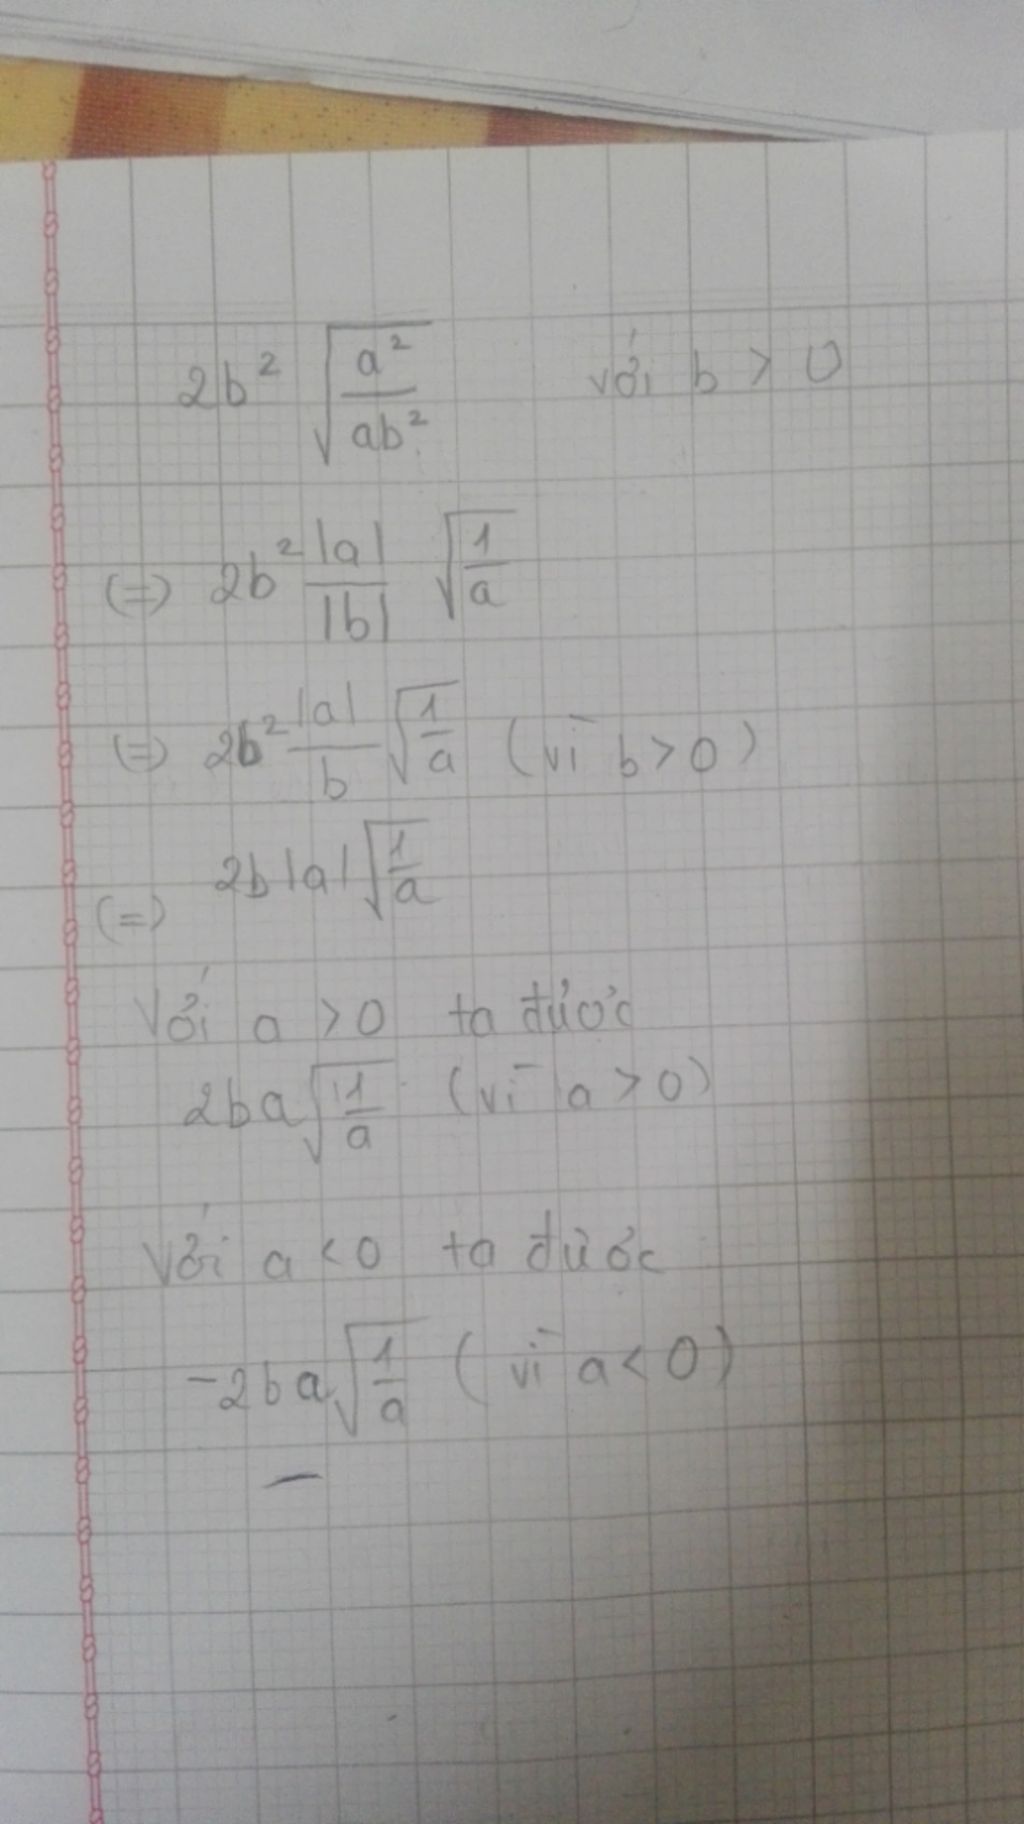 2b² √(a²/ab²) với b > 0
(=) 2b² |a|/|b| √(1/a)
(=) 2b² |a|/b √(1/a) (vì b > 0)
(=) 2b|a| √(1/a)
Với a > 0 ta được
2ba √(1/a) (vì a > 0)
Với a < 0 ta được
-2ba √(1/a) (vì a < 0)